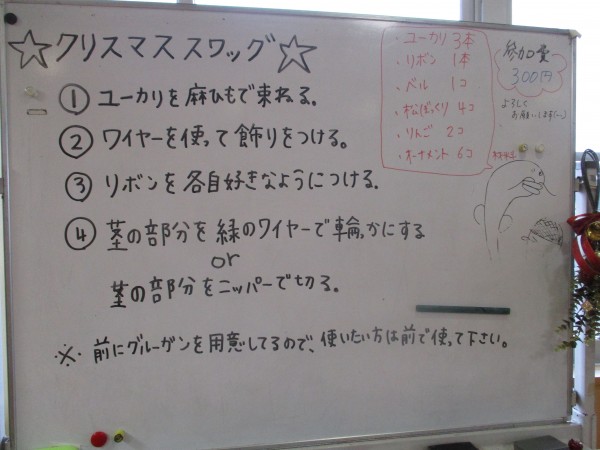 ☆クリスマススワッグ☆
① ユーカリを麻ひもで束ねる。
② ワイヤーを使って飾りをつける。
③ リボンを各自好きなようにつける。
④ 茎の部分を緑のワイヤーで輪っかにする
or
茎の部分をニッパーで切る。
※ 前にグルーガンを用意してるので、使いたい方は前で使って下さい。
・ユーカリ 3本
・リボン 1本
・ベル 1コ
・松ぼっくり 4コ
・りんご 2コ
・オーナメント 6コ
参加費
300円
よろしく
お願いします